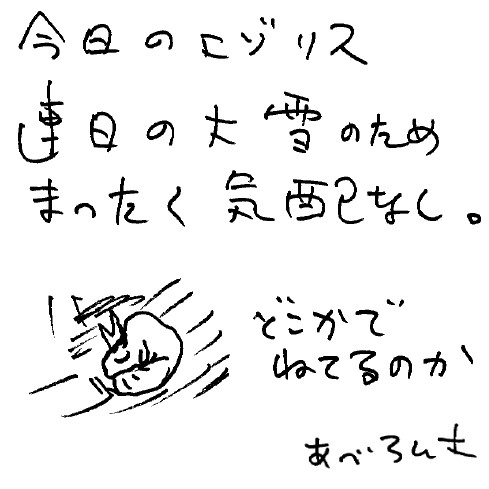 今日のエゾリス
連日の大雪のため
まったく気配なし。
どこかで
ねてるのか
あべろんさ